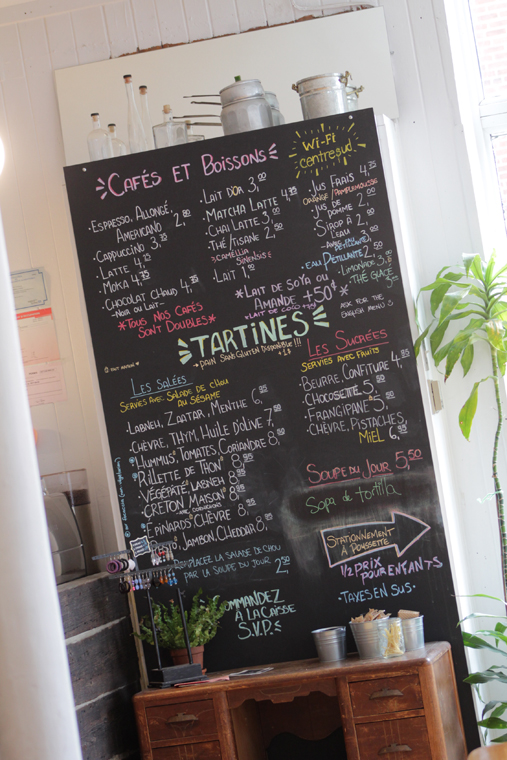 CAFÉS ET BOISSONS
WI-FI
centresud
• ESPRESSO, ALLONGÉ
AMERICANO 2,80
• CAPPUCCINO 3,75
• LATTE 4,25
• MOKA 4,75
• CHOCOLAT CHAUD 4,75
- NOIR OU LAIT -
*TOUS NOS CAFÉS
SONT DOUBLES*
• LAIT D'OR 3,00
• MATCHA LATTE 4,75
• CHAI LATTE 3,00
• THÉ/TISANE 2,00
CAMELLIA
SINENSIS
• LAIT 1,00
*LAIT DE SOYA OU
AMANDE +50¢*
*LAIT DE COCO
• JUS FRAIS 4,75
ORANGE / PAMPLEMOUSSE
• JUS DE
POMME 2,00
• SIROP À
L'EAU 2,00
PÉTILLANTE
• EAU PÉTILLANTE 2,00
• LIMONADE 3,00
• THÉ GLACÉ
ASK FOR THE
ENGLISH MENU
TARTINES
→ PAIN SANS GLUTEN DISPONIBLE!!!
TOUT MAISON
LES SALÉES
SERVIES AVEC SALADE DE CHOU
AU SÉSAME
• LABNEH, ZAATAR, MENTHE 6,95
• CHÈVRE, THYM, HUILE D'OLIVE 7,50
• HUMMUS, TOMATES, CORIANDRE 8,50
• RILLETTE DE THON 8,95
• VÉGÉPATÉ, LABNEH 8,95
• CRETON MAISON 8,95
• EPINARDS CHÈVRE 8,95
JAMBON, CHEDDAR 8,50
REMPLACEZ LA SALADE DE CHOU
PAR LA SOUPE DU JOUR 2,50
LES SUCRÉES
SERVIES AVEC FRUITS
• BEURRE, CONFITURE 4,75
• CHOCOSETTE 5,00
• FRANGIPANE 5,00
• CHÈVRE, PISTACHES,
MIEL 6,95
SOUPE DU JOUR 5,50
Sopa de tortilla
STATIONNEMENT
À POUSSETTE
1/2 PRIX
POUR ENFANTS
• TAXES EN SUS •
OMMANDEZ
À LA CAISSE
S.V.P.